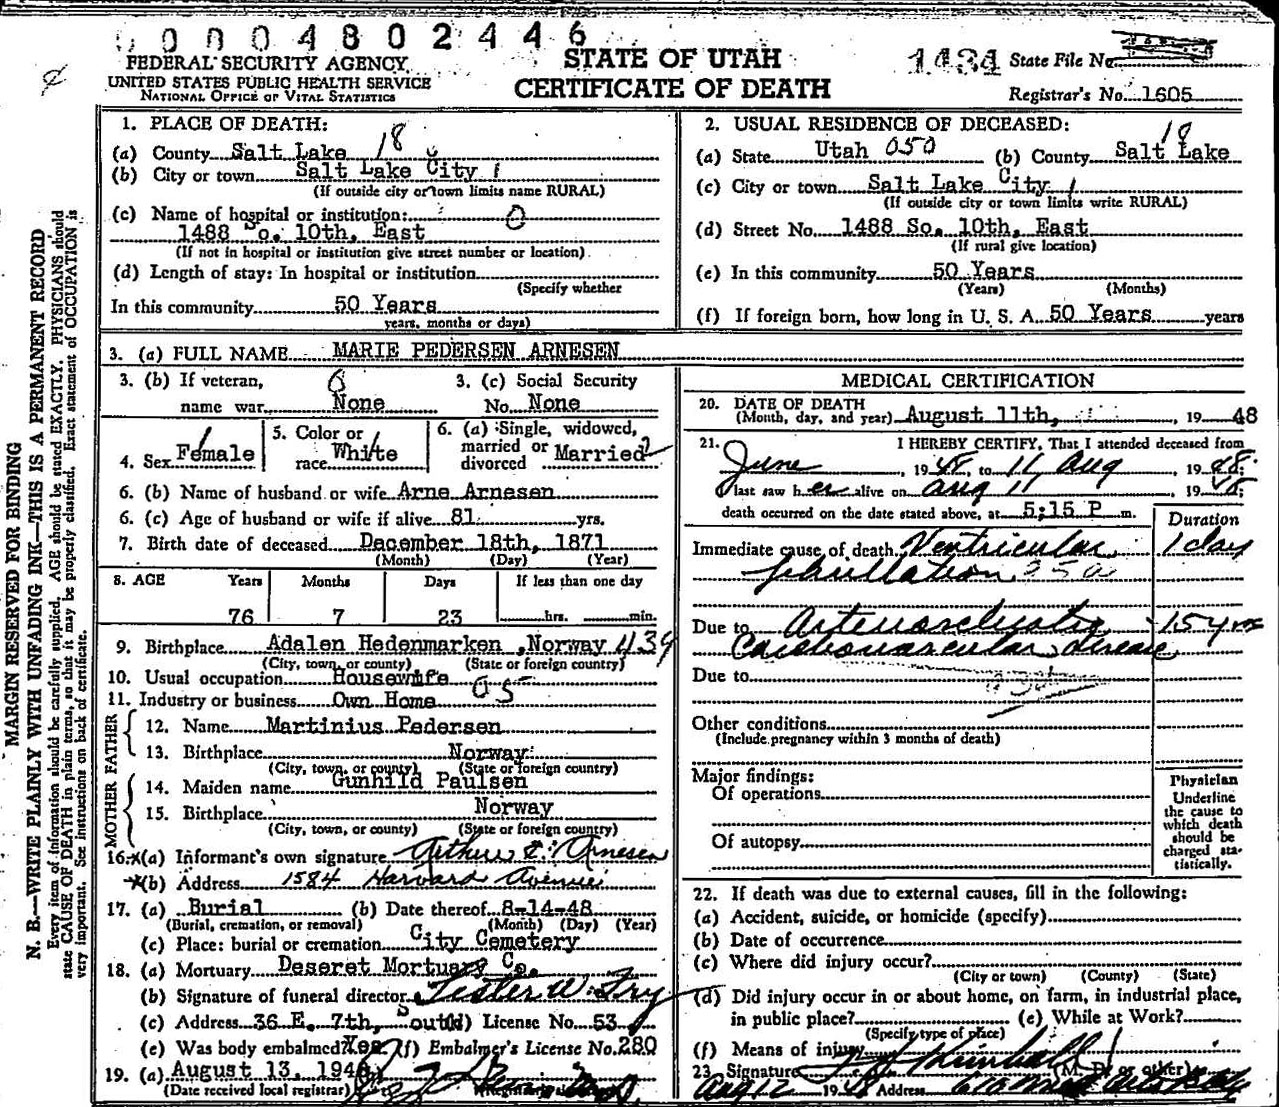 0004802446
FEDERAL SECURITY AGENCY
UNITED STATES PUBLIC HEALTH SERVICE
NATIONAL OFFICE OF VITAL STATISTICS
STATE OF UTAH
CERTIFICATE OF DEATH
1434 State File No.
Registrar's No. 1605
MARGIN RESERVED FOR BINDING
N. B.—WRITE PLAINLY WITH UNFADING INK—THIS IS A PERMANENT RECORD
Every item of information should be carefully supplied. AGE should be stated EXACTLY. PHYSICIANS should
state CAUSE OF DEATH in plain terms, so that it may be properly classified. Exact statement of OCCUPATION is
very important. See instructions on back of certificate.
1. PLACE OF DEATH:
(a) County Salt Lake 18
(b) City or town Salt Lake City 1
(If outside city or town limits name RURAL)
(c) Name of hospital or institution: 0
1488 So. 10th, East
(If not in hospital or institution give street number or location)
(d) Length of stay: In hospital or institution
(Specify whether
In this community 50 Years
years, months or days)
2. USUAL RESIDENCE OF DECEASED:
(a) State Utah 050 (b) County Salt Lake 18
(c) City or town Salt Lake City 1
(If outside city or town limits write RURAL)
(d) Street No. 1488 So. 10th, East
(If rural give location)
(e) In this community 50 Years
(Years) (Months)
(f) If foreign born, how long in U. S. A. 50 Years years
3. (a) FULL NAME MARIE PEDERSEN ARNESEN
3. (b) If veteran, 0 3. (c) Social Security
name war None No. None
4. Sex Female 5. Color or race White 6. (a) Single, widowed, married or divorced Married 2
6. (b) Name of husband or wife Arne Arnesen
6. (c) Age of husband or wife if alive 81 yrs.
7. Birth date of deceased December 18th, 1871
(Month) (Day) (Year)
8. AGE Years Months Days If less than one day
76 7 23 hrs. min.
9. Birthplace Adalen Hedenmarken, Norway
(City, town, or county) (State or foreign country)
10. Usual occupation Housewife
11. Industry or business Own Home 05
FATHER
12. Name Martinius Pedersen
13. Birthplace Norway
(City, town, or county) (State or foreign country)
MOTHER
14. Maiden name Gunhild Paulsen
15. Birthplace Norway
(City, town, or county) (State or foreign country)
16. x(a) Informant's own signature Arthur E. Arnesen
x(b) Address 1584 Harvard Avenue
17. (a) Burial (b) Date thereof 8-14-48
(Burial, cremation, or removal) (Month) (Day) (Year)
(c) Place: burial or cremation City Cemetery
18. (a) Mortuary Deseret Mortuary Co.
(b) Signature of funeral director Lester W. Fry
(c) Address 36 E. 7th, South (d) License No. 53
(e) Was body embalmed? Yes (f) Embalmer's License No. 280
19. (a) August 13, 1948
(Date received local registrar)
MEDICAL CERTIFICATION
20. DATE OF DEATH
(Month, day, and year) August 11th, 19 48
21. I HEREBY CERTIFY, That I attended deceased from
June, 1948, to 11 Aug, 1948;
I last saw her alive on Aug 11, 1948;
death occurred on the date stated above, at 5:15 P m.
Duration
Immediate cause of death Ventricular 1 day
fibrillation
Due to Arteriosclerotic 15 yrs
Cardiovascular disease
Due to
Other conditions
(Include pregnancy within 3 months of death)
Major findings:
Of operations
Of autopsy
Physician
Underline
the cause to
which death
should be
charged sta-
tistically.
22. If death was due to external causes, fill in the following:
(a) Accident, suicide, or homicide (specify)
(b) Date of occurrence
(c) Where did injury occur?
(City or town) (County) (State)
(d) Did injury occur in or about home, on farm, in industrial place,
in public place? (e) While at Work?
(Specify type of place)
(f) Means of injury
23. Signature Kimball (M. D. or other)
Aug 12 1948 Address